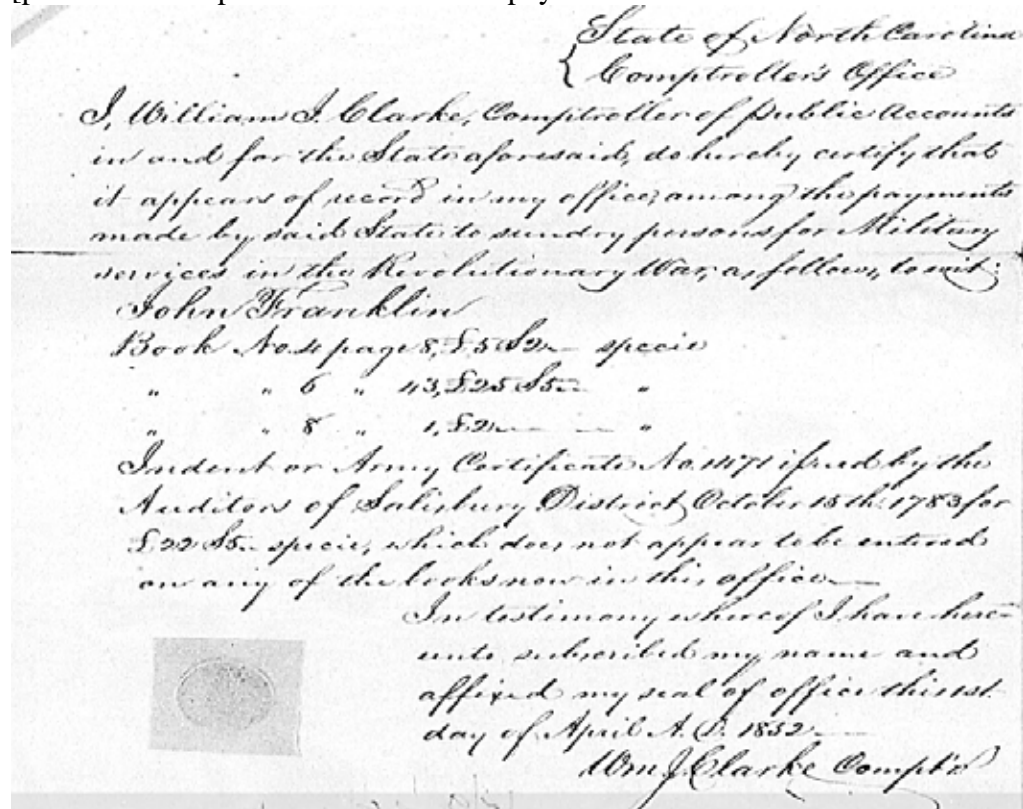 State of North Carolina
Comptroller's Office
I, William J. Clarke, Comptroller of Public Accounts
in and for the State aforesaid, do hereby certify that
it appears of record in my office, among the payments
made by said State to sundry persons for Military
services in the Revolutionary War, as follows, to wit:
John Franklin
Book No. 4 page 8, £.5 S2— specie
" " 6 " 43, £25 S5— "
" " 8 " 1, £.2— — "
Indent or Army Certificate No. 1471 issued by the
Auditors of Salisbury District, October 15th 1783 for
£.22 S5— specie, which does not appear to be entered
on any of the books now in this office—
In testimony whereof I have here-
unto subscribed my name and
affixed my seal of office this 1st
day of April A. D. 1852—
Wm J. Clarke Compt'r